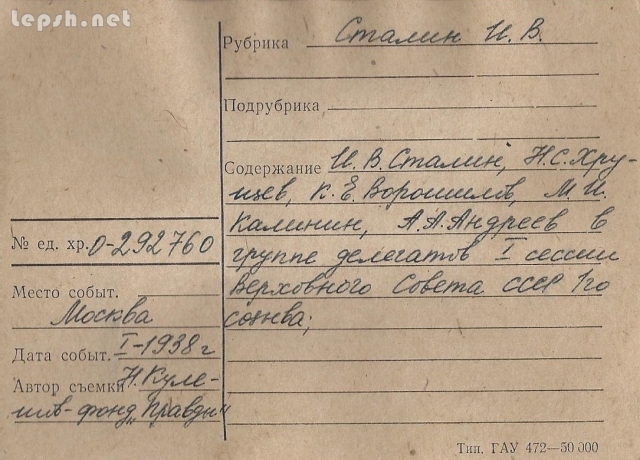 lepsh.net
Рубрика Сталин И. В.
Подрубрика
Содержание И. В. Сталин, Н. С. Хру-
щев, К. Е. Ворошилов, М. И.
Калинин, А. А. Андреев в
группе делегатов I сессии
Верховного Совета СССР 1го
созыва;
№ ед. хр. 0-292760
Место событ.
Москва
Дата событ. I-1938 г
Автор съемки Н. Куле-
шов-фонд „Правды“
Тип. ГАУ 472—50 000